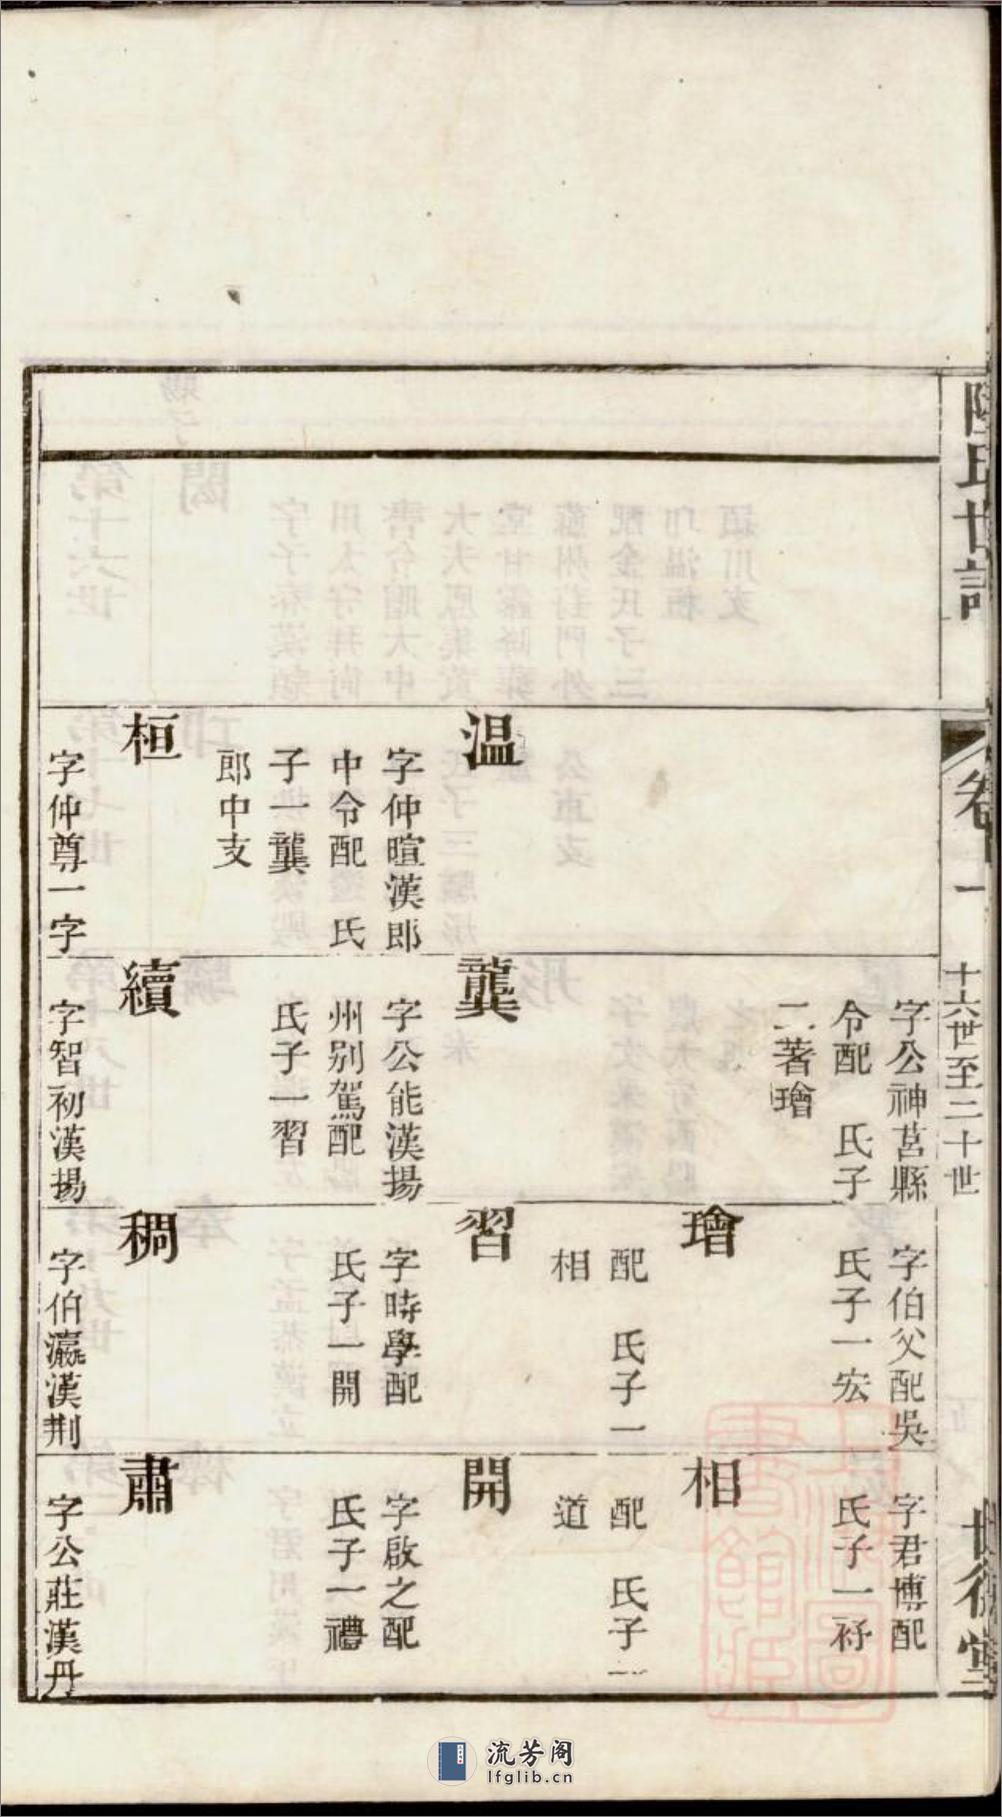 陸氏世譜
卷十一
十六世至二十世
世德堂
溫
字仲暄漢郎
中令配　氏
子一龔
郎中支
桓
字仲尊一字
字公神莒縣
令配　氏子
二著璯
龔
字公能漢揚
州別駕配
氏子一習
續
字智初漢揚
字伯父配吳
氏子一宏
璯
配　氏子一
相
習
字時學配
氏子一開
稠
字伯瀛漢荆
字君博配
氏子一
相
配　氏子一
道
開
字啟之配
氏子一禮
肅
字公莊漢丹
流芳阁
lfglib.cn